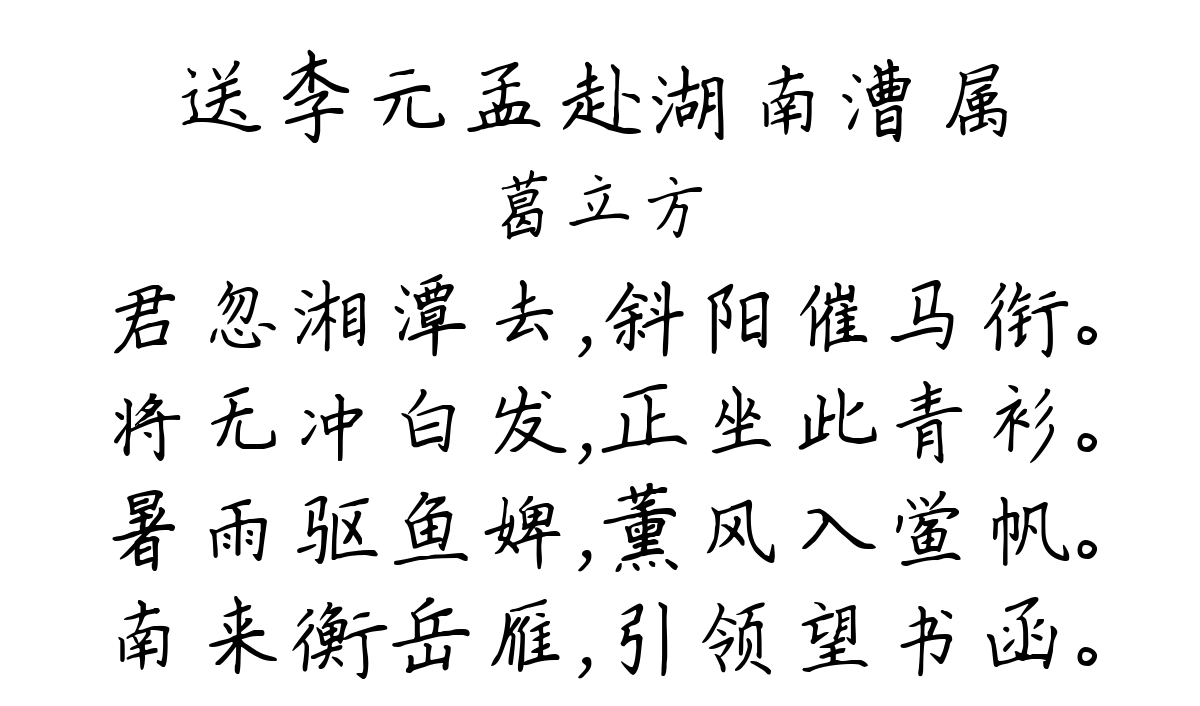 送李元孟赴湖南漕属
葛立方
君忽湘潭去,斜阳催马衔。
将无冲白发,正坐此青衫。
暑雨驱鱼婢,薰风入鲎帆。
南来衡岳雁,引领望书函。